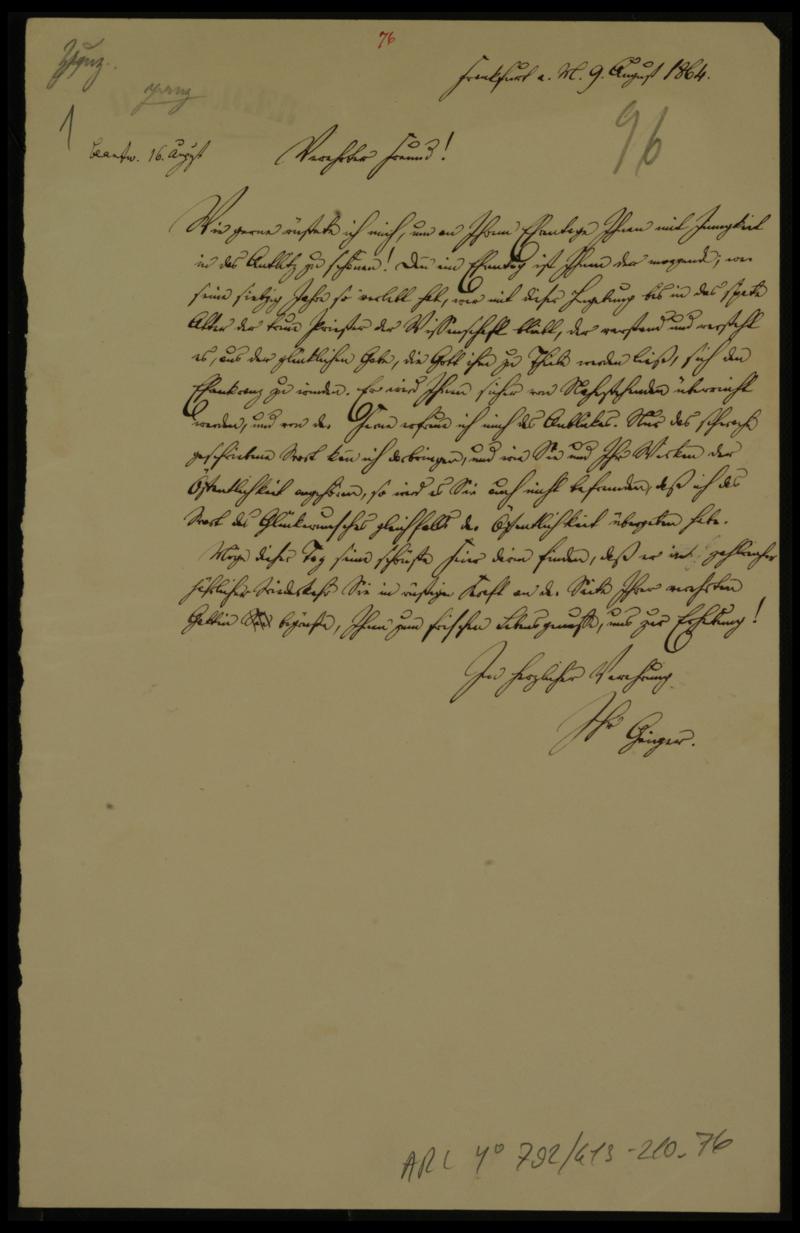 76
Frankfurt a. M. 9. August 1864.
96
beantw. 16. August
Verehrter Freund!
Wie gerne rüstete ich mich, um an Ihrem Ehrentage Ihnen mit Innigkeit
in das Antlitz zu schauen! Denn ein Ehrentag ist Ihnen der morgende; wer
seine siebzig Jahre so verlebt hat, wer mit dieser Hingebung bis in das späte
Alter der treue Priester der Wissenschaft bleibt, der verstand und versteht
es, aus der glücklichen Gabe, die Gott ihm zu Theil werden ließ, sich den
Ehrenkranz zu winden. Er wird Ihnen sicher von Nahestehenden überreicht
werden, und von der Ferne erfreue ich mich des Anblickes. Nur das schwache
geschriebene Wort kann ich darbringen, und wie Sie und Ihr Wirken der
Öffentlichkeit angehören, so wird es Sie auch nicht befremden, daß ich das
Wort des Glückwunsches gleichfalls der Öffentlichkeit übergeben habe.
Möge dieser Tag seine schönste Feier darin finden, daß er in zahlreicher
jährlicher Wiederkehr Sie in rüstiger Kraft an der Seite Ihrer verehrten
Gattin begrüße, Ihnen zum frischen Lebensgenusse, uns zur Erhebung!
In herzlicher Verehrung
Ihr Geiger.
ARC 4° 792/G13-210-76